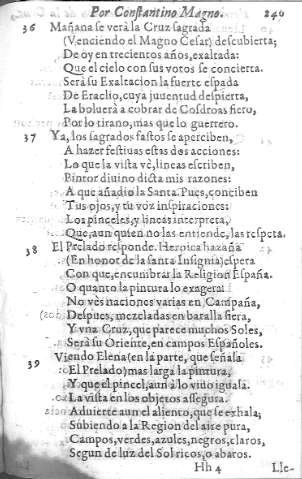 Por Constantino Magno. 240
36 Mañana se verà la Cruz sagrada
(Venciendo el Magno Cesar) descubierta;
De oy en trecientos años, exaltada:
Que el cielo con sus votos se concierta.
Serà su Exaltacion la fuerte espada
De Eraclio, cuya juventud despierta,
La boluerà a cobrar de Cosdroas fiero,
Por lo tirano, mas que lo guerrero.
37 Ya, los sagrados fastos se aperciben,
A hazer festiuas estas dos acciones:
Lo que la vista vè, lineas escriben,
Pintor diuino dicta mis razones:
A que añadio la Santa. Pues, conciben
Tus ojos, y tu voz inspiraciones:
Los pinceles, y lineas interpreta,
Que, aun quien no las entiende, las respeta.
38 El Prelado responde. Heroica hazaña
(En honor de la santa Insignia) espera
Con que, encumbrar la Religion España.
O quanto la pintura lo exagera!
No vès naciones varias en Campaña,
Despues, mezcladas en batalla fiera,
Y vna Cruz, que parece muchos Soles,
Serà su Oriente, en campos Españoles.
39 Viendo Elena (en la parte, que señala
El Prelado) mas larga la pintura,
Y que el pincel, aun à lo viuo iguala.
La vista en los objetos assegura.
Aduierte aun el aliento, que se exhala;
Subiendo a la Region del aire pura,
Campos, verdes, azules, negros, claros,
Segun de luz del Sol ricos, o abaros.
Hh 4 Lle-